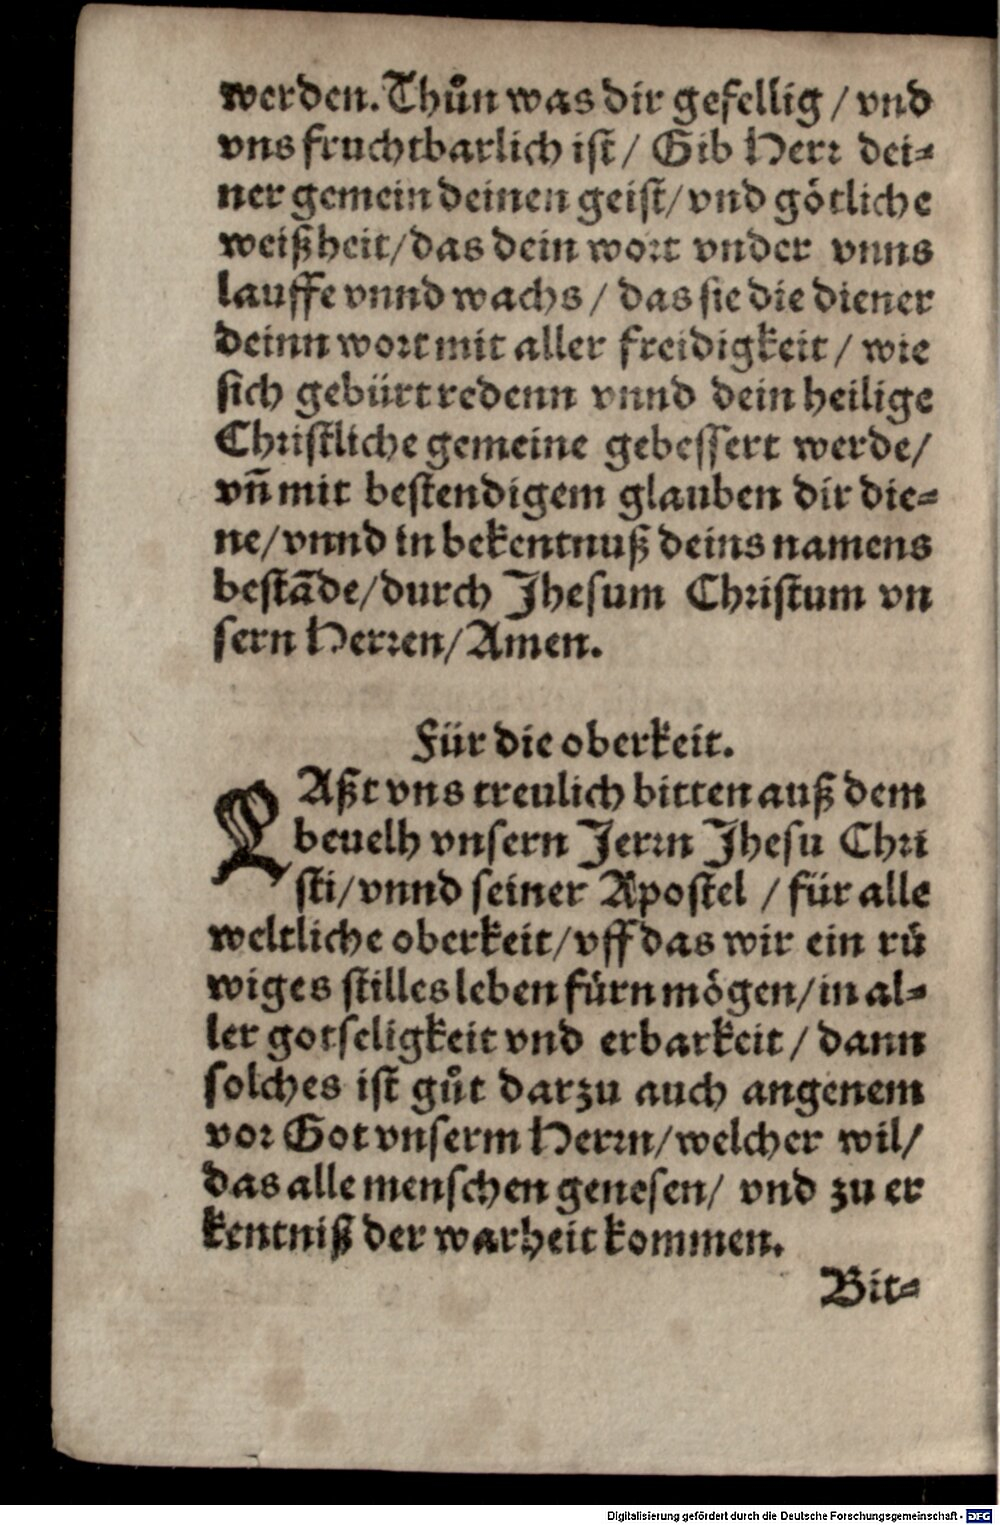 werden. Thuͦn was dir gefellig / vnd
vns fruchtbarlich ist / Gib Herr dei=
ner gemein deinen geist / vnd götliche
weißheit / das dein wort vnder vnns
lauffe vnnd wachs / das sie die diener
deinn wort mit aller freidigkeit / wie
sich gebürt redenn vnnd dein heilige
Christliche gemeine gebessert werde /
vn̄ mit bestendigem glauben dir die=
ne / vnnd in bekentnuß deins namens
bestāde / durch Jhesum Christum vn
sern Herren / Amen.
Für die oberkeit.
LAßt vns treulich bitten auß dem
beuelh vnsern Jerrn Jhesu Chri
sti / vnnd seiner Apostel / für alle
weltliche oberkeit / vff das wir ein ruͤ
wiges stilles leben fürn mögen / in al=
ler gotseligkeit vnd erbarkeit / dann
solches ist guͦt darzu auch angenem
vor Got vnserm Herrn / welcher wil /
das alle menschen genesen / vnd zu er
kentniß der warheit kommen.
Bit=
Digitalisierung gefördert durch die Deutsche Forschungsgemeinschaft - DFG